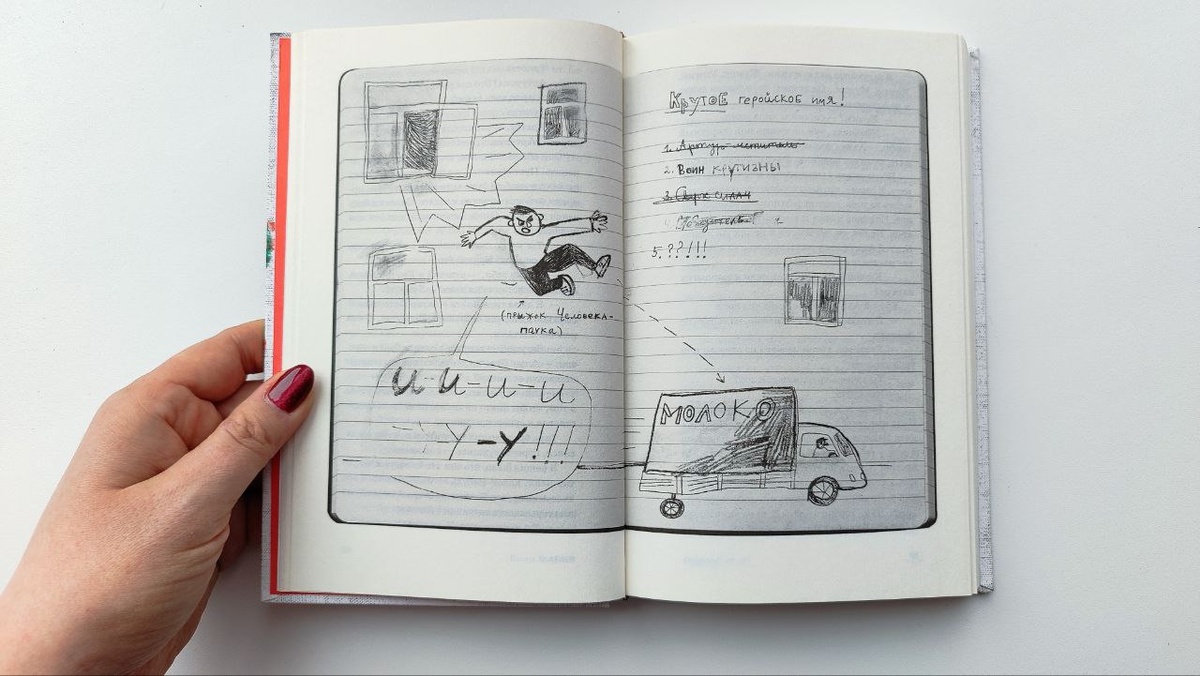 (прыжок Человека-
паука)
И-И-И-И
У-У!!!
Крутое геройское имя!
1. Артур мститель
2. Воин крутизны
3. Супер силач
4.
5. ??!!!
МОЛОКО